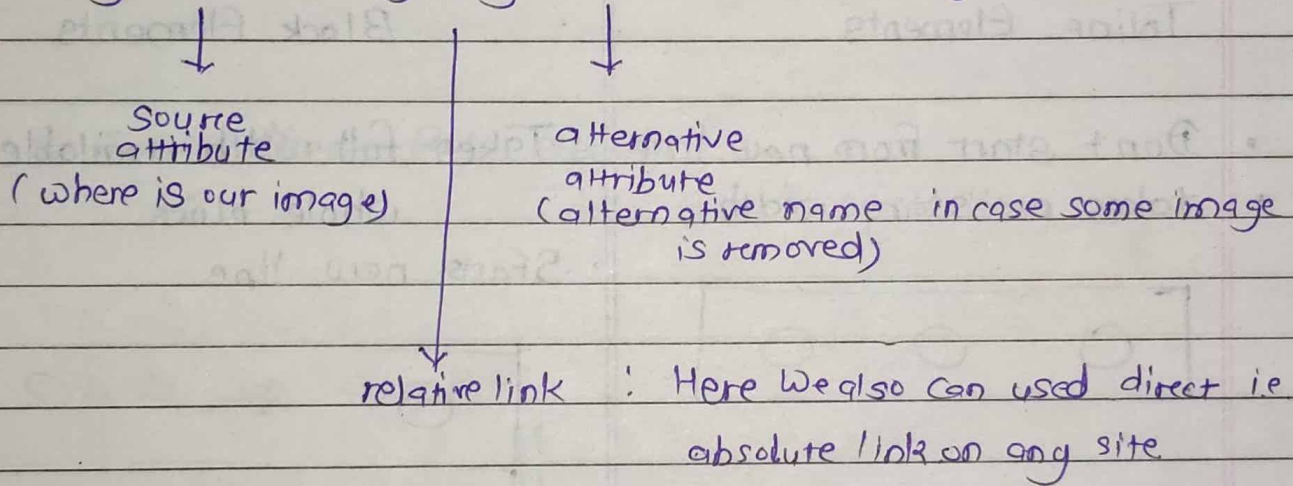 source
attribute
(where is our image)
alternative
attribute
(alternative name in case some image
is removed)
relative link : Here we also can used direct i.e
absolute link on any site